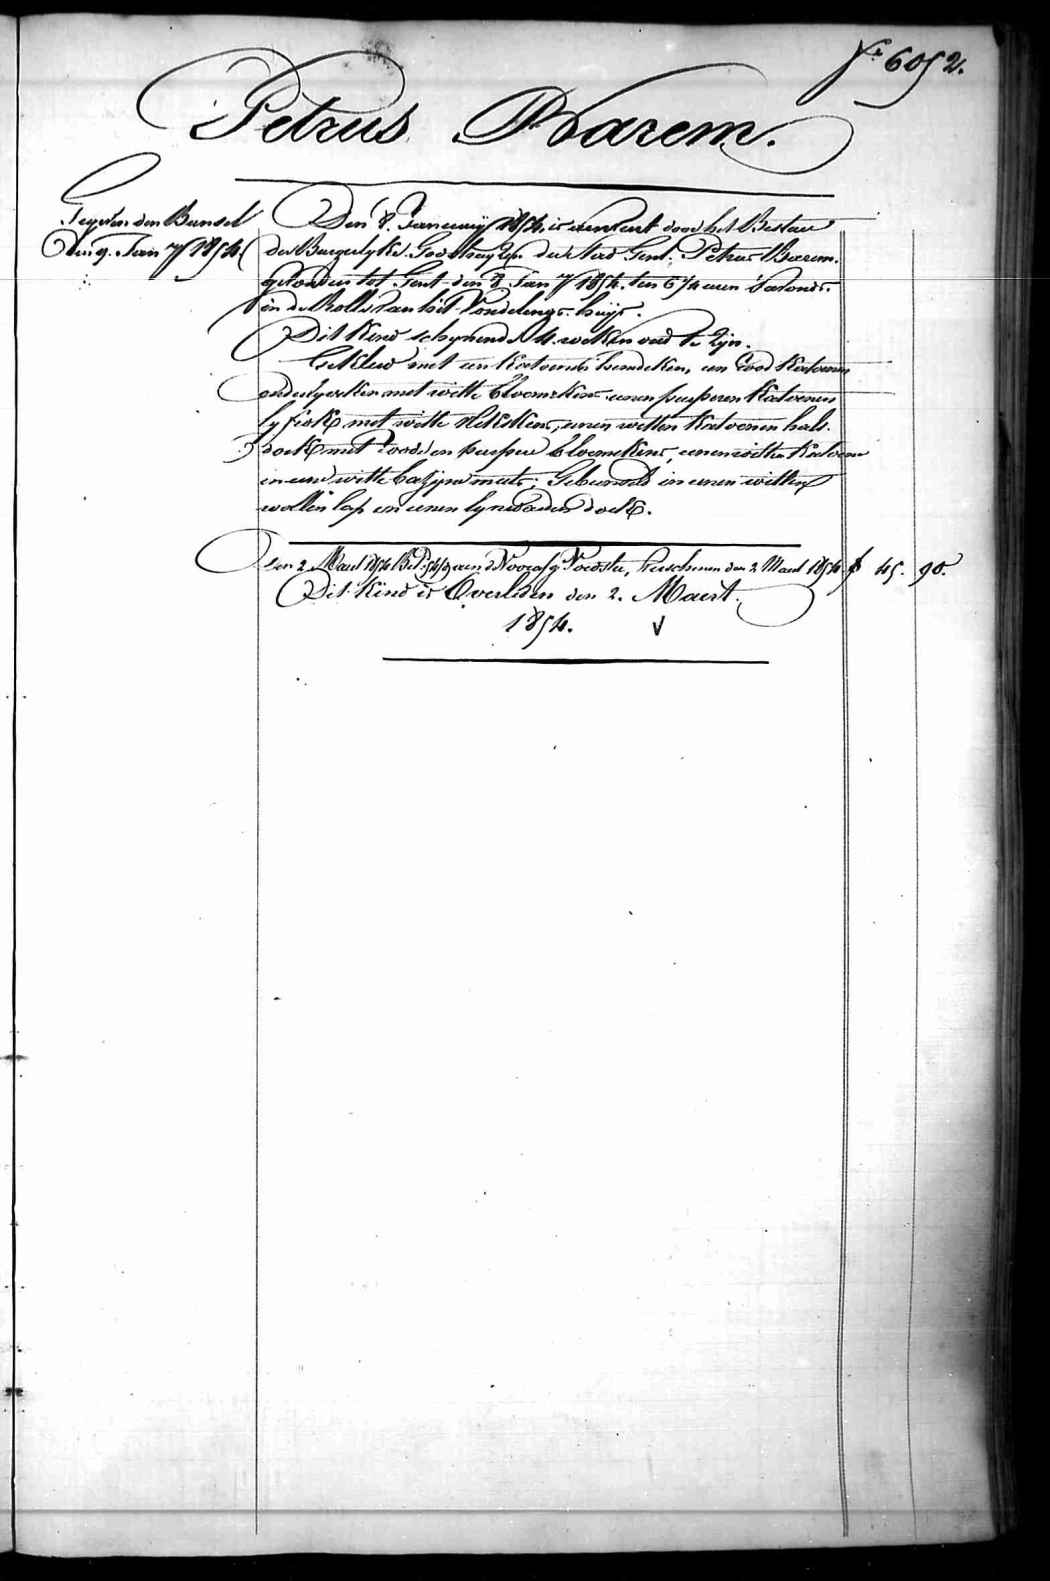 6052.
Petrus Barem.
den 9. Jan ry 1854.
Den 8. January 1854, is aenveert door het Bestuer
der Burgelyke Godshuyzen der stad Gent: Petrus Barem.
gevonden tot Gent den 8 Jan ry 1854. ten 6 1/4 uren 's avonds.
in de Rolle van het Vondelings-huys.
Dit Kind schynende 4. weken oud te zyn.
Gekleed met een Katoenen hemdeken, een rood Katoenen
met witte bloemekens eenen purperen Katoenen
met witte, eenen witten Katoenen hals-
doek met roode en purpere bloemekens, eenen witten Katoene
en eene witte muts; Gebunseld in eenen witten
wollen lap en eenen lynwaden doek.
den 2 Maert 1854 Voedster, verschenen den 2 Maert 1854. f 45. 90.
Dit Kind is Overleden den 2. Maert.
1854.